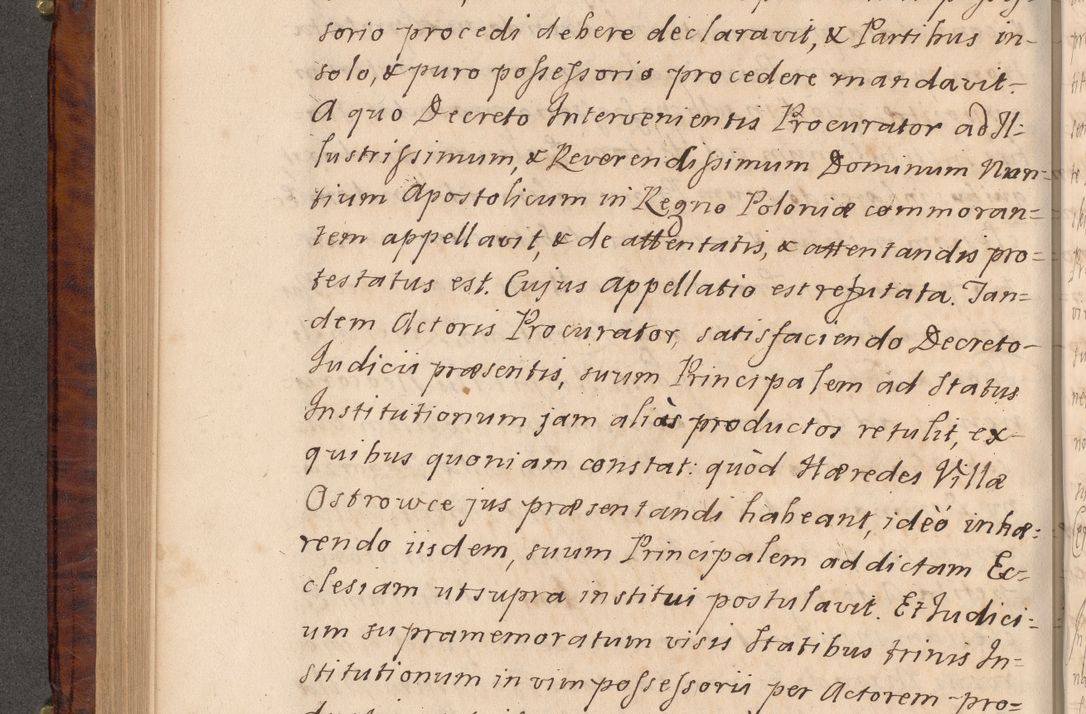 sorio procedi debere declaravit, & Partibus in-
solo, & puro possessorio procedere mandavit.
A quo Decreto Intervenientis Procurator ad Il-
lustrissimum, & Reverendissimum Dominum Nun=
tium Apostolicum in Regno Poloniæ commoran=
tem appellavit, & de attentatis, & attentandis pro=
testatus est. Cujus appellatio est refutata. Tan=
dem Actoris Procurator, satisfaciendo Decreto
Judicii præsentis, suum Principalem ad Status
Institutionum jam aliàs productos retulit, ex
quibus quoniam constat: quòd Hæredes Villæ
Ostrowce jus præsentandi habeant, ideò inhæ=
rendo iisdem, suum Principalem ad dictam Ec=
clesiam utsupra institui postulavit. Et Judici=
um supramemoratum visis Statibus trinis In=
stitutionum in vim possessorii per Actorem pro=